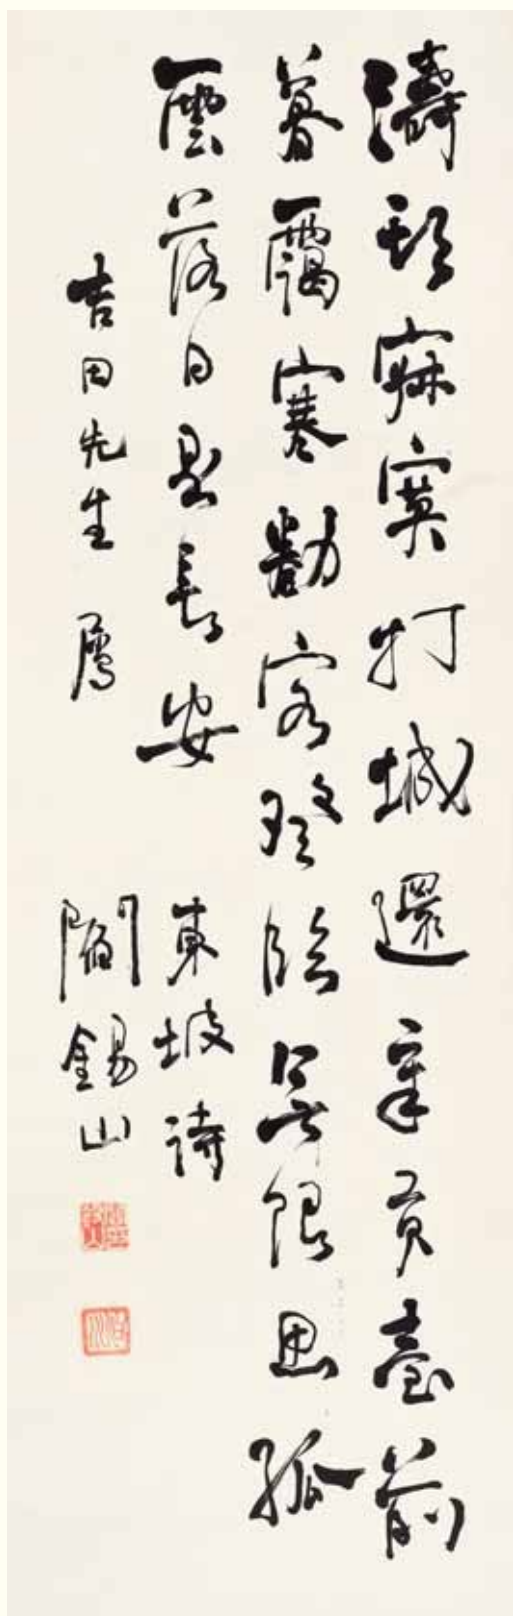 濤頭寂寞打城還章貢臺前
暮靄寒勸客登臨無限思孤
雲落日是長安 東坡詩
吉田先生 屬 閻錫山